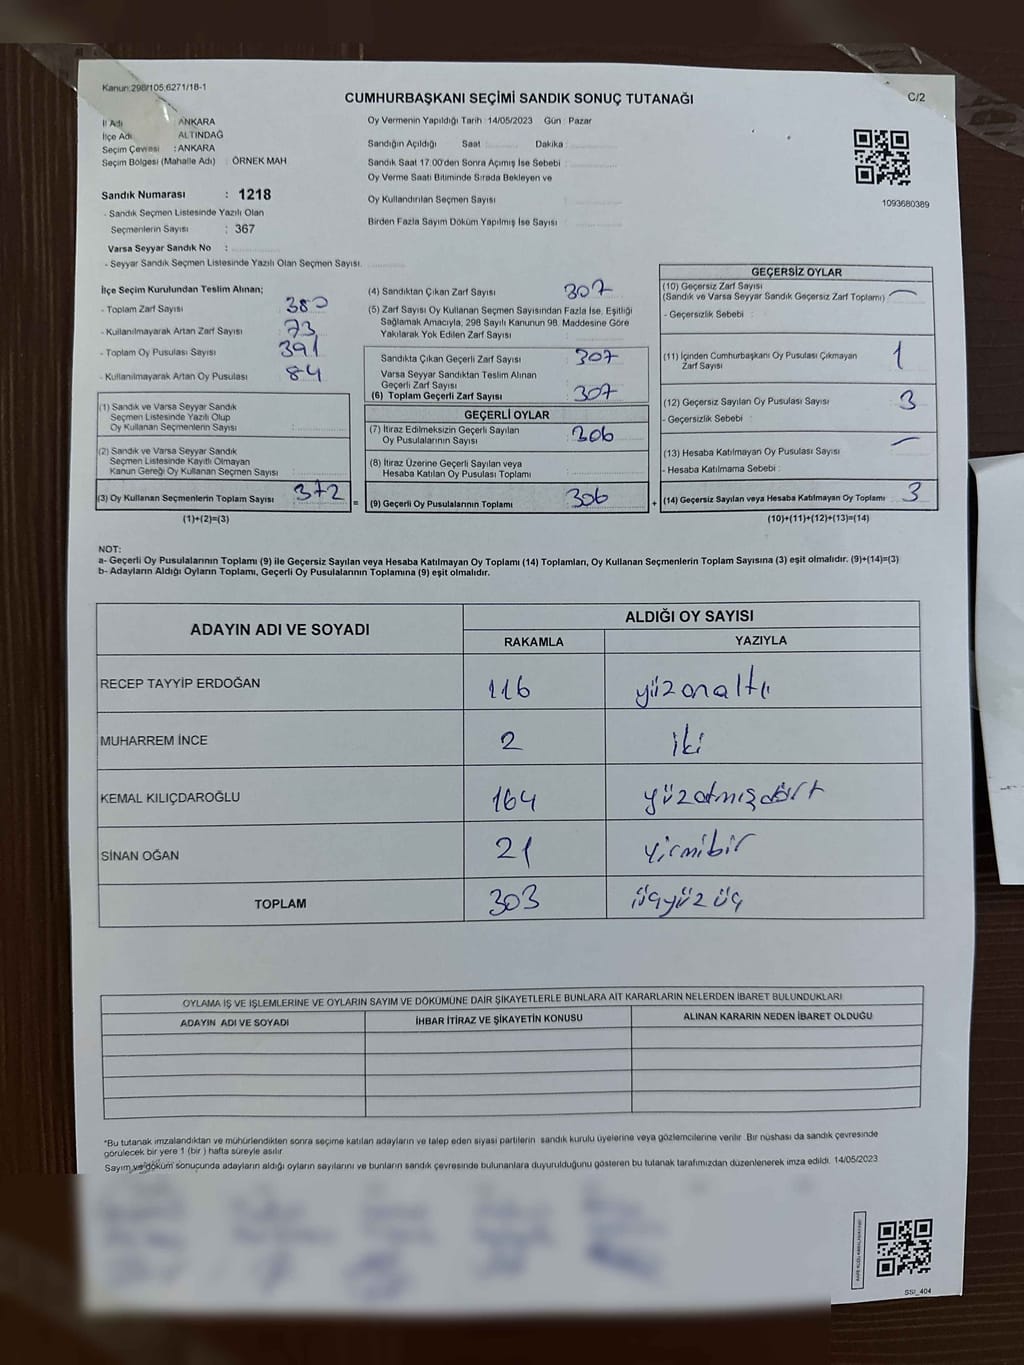 Kanun:298/105,6271/18-1
CUMHURBAŞKANI SEÇİMİ SANDIK SONUÇ TUTANAĞI
C/2
İl Adı : ANKARA
İlçe Adı : ALTINDAĞ
Seçim Çevresi : ANKARA
Seçim Bölgesi (Mahalle Adı) : ÖRNEK MAH
Oy Vermenin Yapıldığı Tarih :14/05/2023 Gün : Pazar
Sandığın Açıldığı Saat : Dakika :
Sandık Saat 17:00'den Sonra Açımış İse Sebebi :
Oy Verme Saati Bitiminde Sırada Bekleyen ve
Oy Kullandırılan Seçmen Sayısı :
Birden Fazla Sayım Döküm Yapılmış İse Sayısı :
1093680389
Sandık Numarası : 1218
- Sandık Seçmen Listesinde Yazılı Olan
Seçmenlerin Sayısı : 367
Varsa Seyyar Sandık No :
- Seyyar Sandık Seçmen Listesinde Yazılı Olan Seçmen Sayısı:
İlçe Seçim Kurulundan Teslim Alınan;
- Toplam Zarf Sayısı : 380
- Kullanılmayarak Artan Zarf Sayısı : 73
- Toplam Oy Pusulası Sayısı : 391
- Kullanılmayarak Artan Oy Pusulası : 84
(1) Sandık ve Varsa Seyyar Sandık
Seçmen Listesinde Yazılı Olup
Oy Kullanan Seçmenlerin Sayısı :
(2) Sandık ve Varsa Seyyar Sandık
Seçmen Listesinde Kayıtlı Olmayan
Kanun Gereği Oy Kullanan Seçmen Sayısı :
(3) Oy Kullanan Seçmenlerin Toplam Sayısı : 372
(1)+(2)=(3)
(4) Sandıktan Çıkan Zarf Sayısı : 307
(5) Zarf Sayısı Oy Kullanan Seçmen Sayısından Fazla İse, Eşitliği
Sağlamak Amacıyla, 298 Sayılı Kanunun 98. Maddesine Göre
Yakılarak Yok Edilen Zarf Sayısı :
Sandıkta Çıkan Geçerli Zarf Sayısı : 307
Varsa Seyyar Sandıktan Teslim Alınan
Geçerli Zarf Sayısı :
(6) Toplam Geçerli Zarf Sayısı : 307
GEÇERLİ OYLAR
(7) İtiraz Edilmeksizin Geçerli Sayılan
Oy Pusulalarının Sayısı : 306
(8) İtiraz Üzerine Geçerli Sayılan veya
Hesaba Katılan Oy Pusulası Toplamı :
= (9) Geçerli Oy Pusulalarının Toplamı : 306 +
GEÇERSİZ OYLAR
(10) Geçersiz Zarf Sayısı
(Sandık ve Varsa Seyyar Sandık Geçersiz Zarf Toplamı) : —
- Geçersizlik Sebebi :
(11) İçinden Cumhurbaşkanı Oy Pusulası Çıkmayan
Zarf Sayısı : 1
(12) Geçersiz Sayılan Oy Pusulası Sayısı : 3
- Geçersizlik Sebebi :
(13) Hesaba Katılmayan Oy Pusulası Sayısı : —
- Hesaba Katılmama Sebebi :
(14) Geçersiz Sayılan veya Hesaba Katılmayan Oy Toplamı : 3
(10)+(11)+(12)+(13)=(14)
NOT:
a- Geçerli Oy Pusulalarının Toplamı (9) ile Geçersiz Sayılan veya Hesaba Katılmayan Oy Toplamı (14) Toplamları, Oy Kullanan Seçmenlerin Toplam Sayısına (3) eşit olmalıdır. (9)+(14)=(3)
b- Adayların Aldığı Oyların Toplamı, Geçerli Oy Pusulalarının Toplamına (9) eşit olmalıdır.
ADAYIN ADI VE SOYADI
ALDIĞI OY SAYISI
RAKAMLA YAZIYLA
RECEP TAYYİP ERDOĞAN 116 yüzonaltı
MUHARREM İNCE 2 iki
KEMAL KILIÇDAROĞLU 164 yüzatmışdört
SİNAN OĞAN 21 yirmibir
TOPLAM 303 üçyüzüç
OYLAMA İŞ VE İŞLEMLERİNE VE OYLARIN SAYIM VE DÖKÜMÜNE DAİR ŞİKAYETLERLE BUNLARA AİT KARARLARIN NELERDEN İBARET BULUNDUKLARI
ADAYIN ADI VE SOYADI İHBAR İTİRAZ VE ŞİKAYETİN KONUSU ALINAN KARARIN NEDEN İBARET OLDUĞU
*Bu tutanak imzalandıktan ve mühürlendikten sonra seçime katılan adayların ve talep eden siyasi partilerin sandık kurulu üyelerine veya gözlemcilerine verilir. Bir nüshası da sandık çevresinde
görülecek bir yere 1 (bir ) hafta süreyle asılır.
Sayım ve döküm sonucunda adayların aldığı oyların sayılarını ve bunların sandık çevresinde bulunanlara duyurulduğunu gösteren bu tutanak tarafımızdan düzenlenerek imza edildi. 14/05/2023
SSI_404